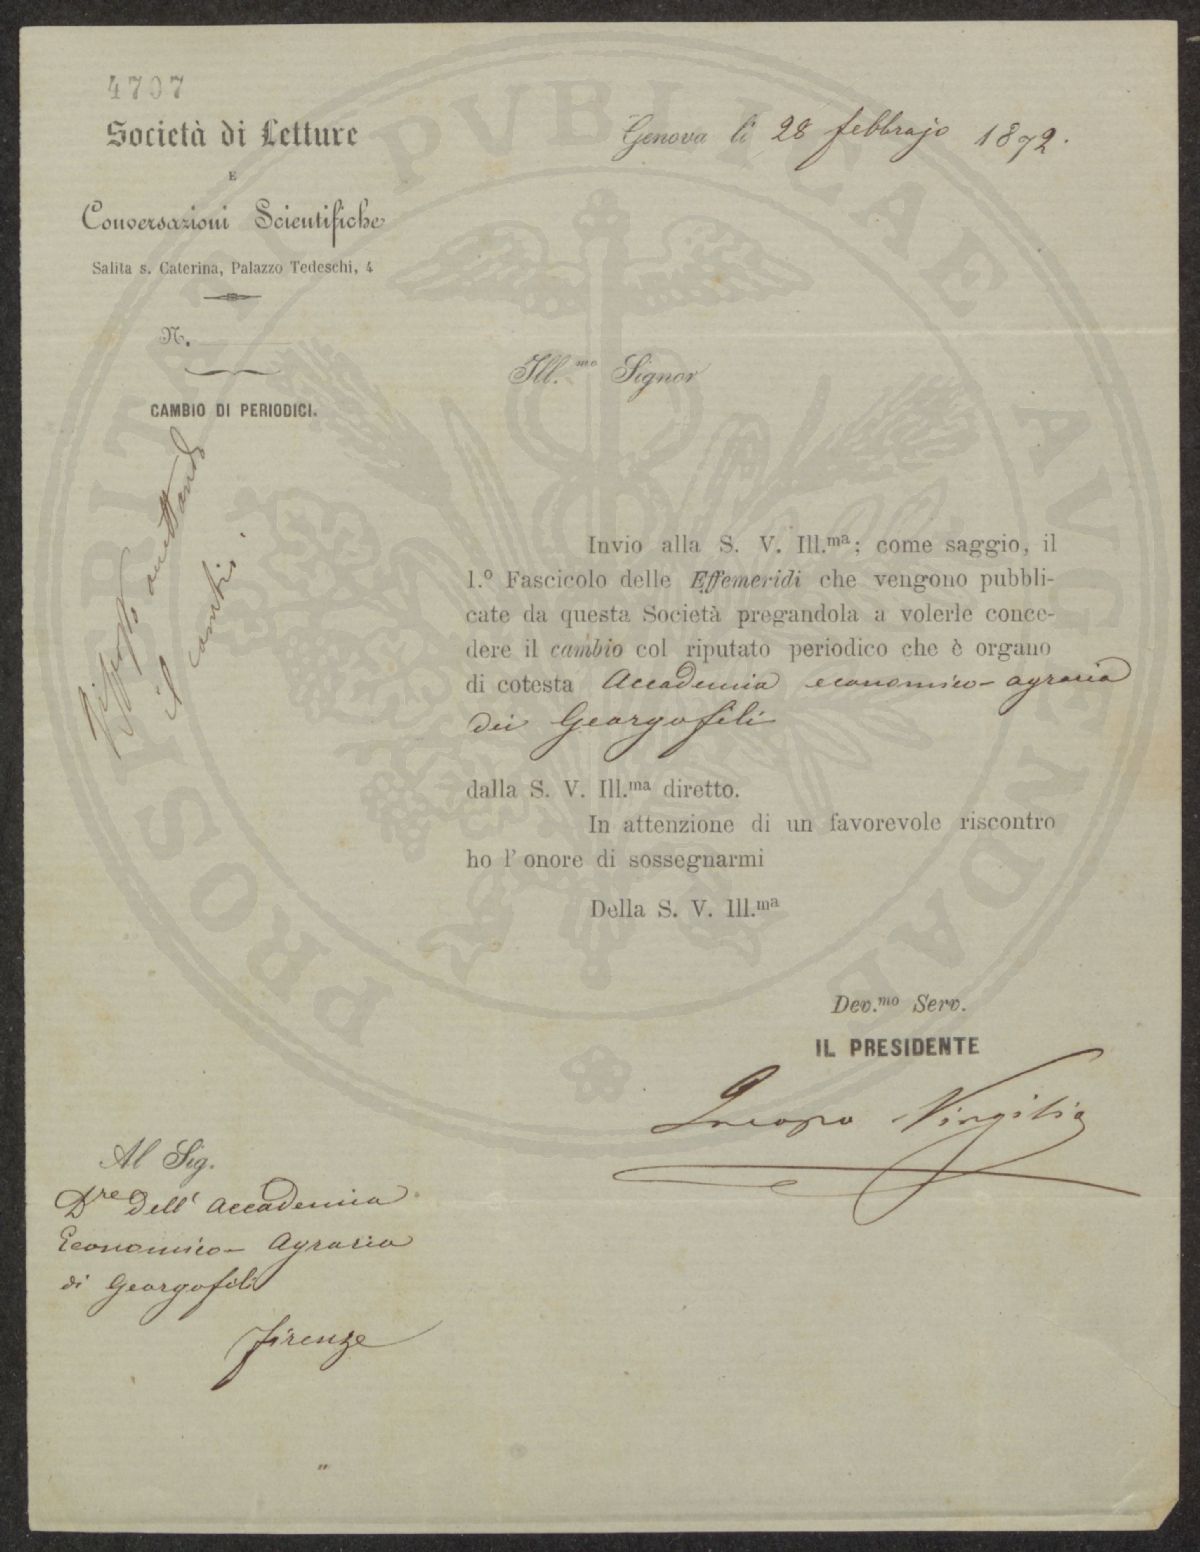 4707
Società di Letture
E
Conversazioni Scientifiche
Salita s. Caterina, Palazzo Tedeschi, 4
N.
CAMBIO DI PERIODICI.
Risposto accettando
il cambio.
Genova li 28 febbrajo 1872.
Ill.mo Signor
Invio alla S. V. Ill.ma; come saggio, il
1.º Fascicolo delle Effemeridi che vengono pubbli-
cate da questa Società pregandola a volerle conce-
dere il cambio col riputato periodico che è organo
di cotesta Accademia economico-agraria
dei Georgofili
dalla S. V. Ill.ma diretto.
In attenzione di un favorevole riscontro
ho l'onore di sossegnarmi
Della S. V. Ill.ma
Dev.mo Serv.
IL PRESIDENTE
Jacopo Virgilio
Al Sig.
Dre Dell' Accademia
Economico-Agraria
di Georgofili
Firenze
PROSPERITATI PVBLICAE AVGENDAE